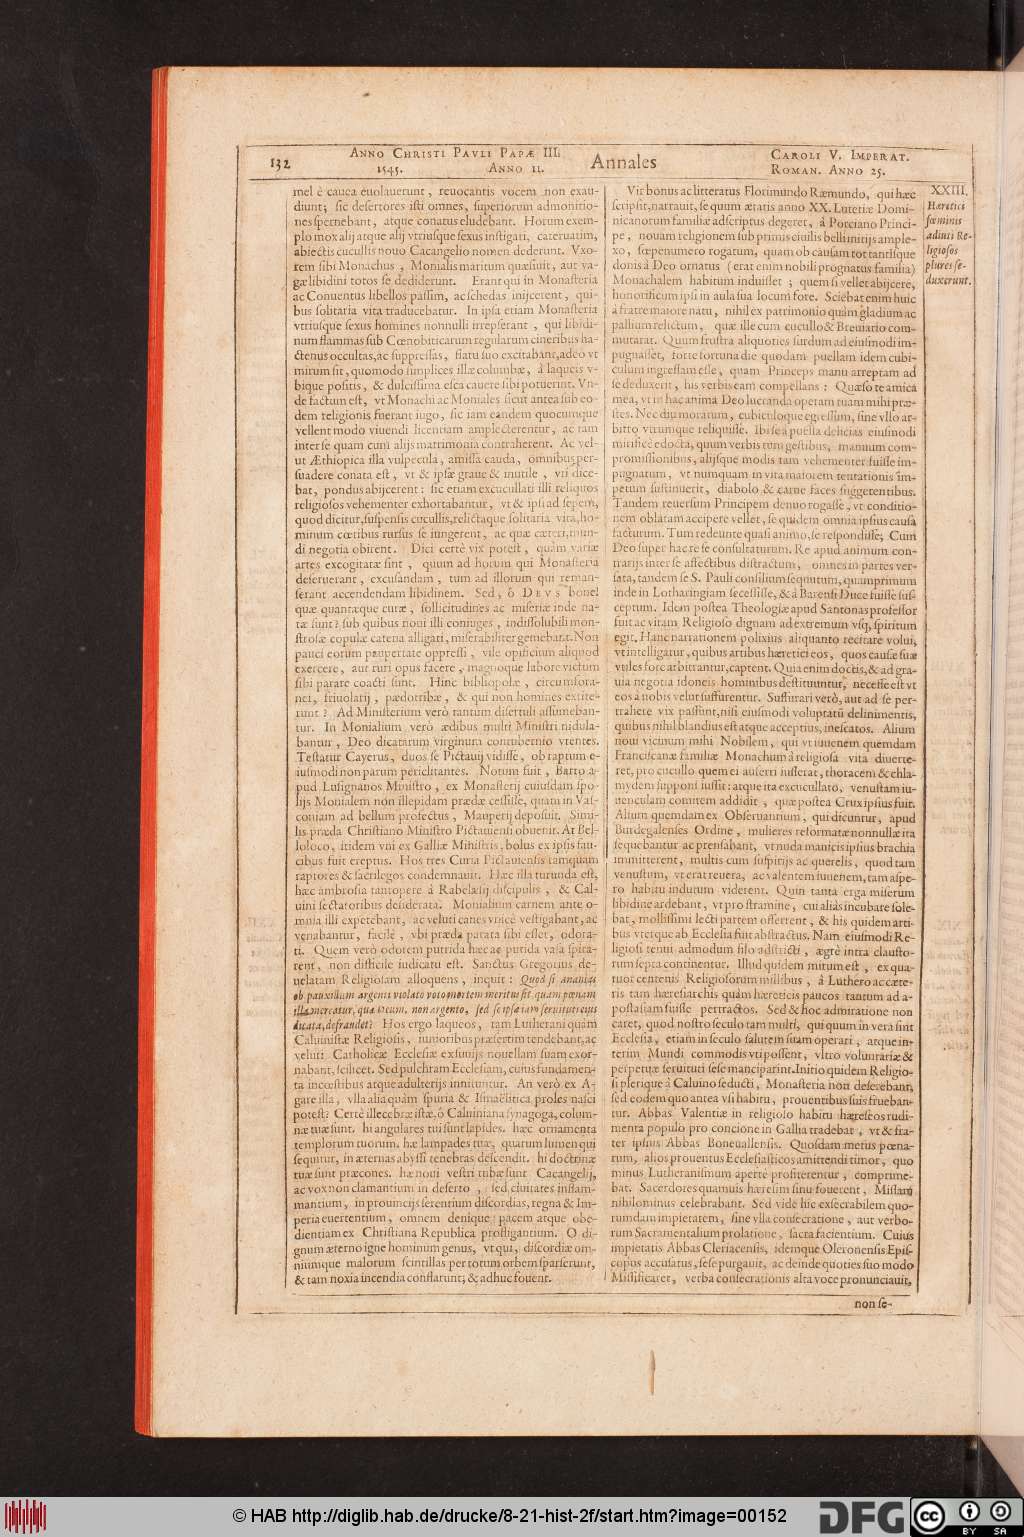 132
ANNO CHRISTI PAVLI PAPÆ III.
1545. ANNO 11.
Annales
CAROLI V. IMPERAT.
ROMAN. ANNO 25.
mel è cauea euolauerunt, reuocantis vocem non exau-
diunt; sic desertores isti omnes, superiorum admonitio-
nes spernebant, atque conatus eludebant. Horum exem-
plo mox alij atque alij vtriusque sexus instigati, cateruatim,
abiectis cucullis nouo Cacangelio nomen dederunt. Vxo-
rem sibi Monachus, Monialis maritum quæsiuit, aut va-
gæ libidini totos se dediderunt. Erant qui in Monasteria
ac Conuentus libellos passim, ac schedas inijcerent, qui-
bus solitaria vita traducebatur. In ipsa etiam Monasteria
vtriusque sexus homines nonnulli irrepserant, qui libidi-
num flammas sub Cœnobiticarum regularum cineribus ha-
ctenus occultas, ac suppressas, flatu suo excitabant, adeò vt
mirum sit, quomodo simplices illæ columbæ, à laqueis v-
bique positis, & dulcissima esca cauere sibi potuerint. Vn-
de factum est, vt Monachi ac Moniales sicut antea sub eo-
dem religionis fuerant iugo, sic iam eandem quocumque
vellent modo viuendi licentiam amplecterentur, ac tam
inter se quam cum alijs matrimonia contraherent. Ac vel-
ut Æthiopica illa vulpecula, amissa cauda, omnibus per-
suadere conata est, vt & ipsæ graue & inutile, vti dice-
bat, pondus abijcerent: sic etiam excucullati illi reliquos
religiosos vehementer exhortabantur, vt & ipsi ad sepem,
quod dicitur, suspensis cucullis, relictaque solitaria vita, ho-
minum cœtibus rursus se iungerent, ac quæ cæteri, mun-
di negotia obirent. Dici certè vix potest, quàm variæ
artes excogitatæ sint, quum ad horum qui Monasteria
deseruerant, excusandam, tum ad illorum qui reman-
serant accendendam libidinem. Sed, ô DEVS bone!
quæ quantæque curæ, sollicitudines ac miseriæ inde na-
tæ sunt? sub quibus noui illi coniuges, indissolubili mon-
strosæ copulæ catena alligati, miserabiliter gemebant. Non
pauci eorum paupertate oppressi, vile opificium aliquod
exercere, aut ruri opus facere, magnoque labore victum
sibi parare coacti sunt. Hinc bibliopolæ, circumfora-
nei, friuolarij, pædotribæ, & qui non homines extite-
runt? Ad Ministerium verò tantùm disertuli assumeban-
tur. In Monialium verò ædibus multi Ministri nidula-
bantur, Deo dicatarum virginum contubernio vtentes.
Testatur Cayerus, duos se Pictauij vidisse, ob raptum e-
iusmodi non parum periclitantes. Notum fuit, Barto a-
pud Lusignanos Ministro, ex Monasterij cuiusdam spo-
lijs Monialem non illepidam prædæ cessisse, quam in Vas-
coniam ad bellum profectus, Mauperij deposuit. Simi-
lis præda Christiano Ministro Pictauiensi obuenit. At Bel-
loloco, itidem vni ex Galliæ Ministris, bolus ex ipsis fau-
cibus fuit ereptus. Hos tres Curia Pictauiensis tamquam
raptores & sacrilegos condemnauit. Hæc illa turunda est,
hæc ambrosia tantopere à Rabelæsij discipulis, & Cal-
uini sectatoribus desiderata. Monialium carnem ante o-
mnia illi expetebant, ac veluti canes vnicè vestigabant, ac
venabantur, facilè, vbi præda parata sibi esset, odora-
ti. Quem verò odorem putrida hæc ac putida vasa spira-
rent, non difficile iudicatu est. Sanctus Gregorius de-
uelatam Religiosam alloquens, inquit: Quod si ananias
ob pauxillum argenti violato voto mortem meritus sit, quam pœnam
illa mercatur, quæ Deum, non argento, sed se ipsa tam seruituti eius
dicata, defraudet? Hos ergo laqueos, tam Lutherani quàm
Caluinistæ Religiosis, iunioribus præsertim tendebant, ac
veluti Catholicæ Ecclesiæ exsuuijs nouellam suam exor-
nabant, scilicet. Sed pulchram Ecclesiam, cuius fundamen-
ta incœstibus atque adulterijs innituntur. An verò ex A-
gare illa, vlla alia quàm spuria & Ismaëlitica proles nasci
potest? Certè illecebræ istæ, ô Caluiniana synagoga, colum-
næ tuæ sunt. hi angulares tui sunt lapides. hæc ornamenta
templorum tuorum. hæ lampades tuæ, quarum lumen qui
sequitur, in æternas abyssi tenebras descendit. hi doctrinæ
tuæ sunt præcones. hæ noui vestri tubæ sunt Cacangelij,
ac vox non clamantium in deserto, sed ciuitates inflam-
mantium, in prouincijs serentium discordias, regna & Im-
peria euertentium, omnem denique pacem atque obe-
dientiam ex Christiana Republica profligantium. O di-
gnum æterno igne hominum genus, vt qui, discordiæ om-
niumque malorum scintillas per totum orbem sparserunt,
& tam noxia incendia conflarunt; & adhuc fouent.
Vir bonus ac litteratus Florimundo Ræmundo, qui hæc
scripsit, narrauit, se quum ætatis anno XX. Lutetiæ Domi-
nicanorum familiæ adscriptus degeret, à Porciano Princi-
pe, nouam religionem sub primis ciuilis belli initijs ample-
xo, sœpenumero rogatum, quam ob causam tot tantisque
donis à Deo ornatus (erat enim nobili prognatus familia)
Monachalem habitum induisset; quem si vellet abijcere,
honorificum ipsi in aula sua locum fore. Sciebat enim huic
à fratre maiore natu, nihil ex patrimonio quàm gladium ac
pallium relictum, quæ ille cum cucullo & Breuiario com-
mutarat. Quum frustra aliquoties surdum ad eiusmodi im-
pugnasset, forte fortuna die quodam puellam idem cubi-
culum ingressam esse, quam Princeps manu arreptam ad
se deduxerit, his verbis eam compellans: Quæso te amica
mea, vt in hac anima Deo lucranda operam tuam mihi præ-
stes. Nec diu moratum, cubiculoque egressum, sine vllo ar-
bitro vtrumque reliquisse. Ibi se a puella delicias eiusmodi
mirificè edocta, quum verbis tum gestibus, manuum com-
promissionibus, alijsque modis tam vehementer fuisse im-
pugnatum, vt numquam in vita maiorem tentationis im-
petum sustinuerit, diabolo & carne faces suggerentibus.
Tandem reuersum Principem denuo rogasse, vt conditio-
nem oblatam accipere vellet, se quidem omnia ipsius causa
facturum. Tum redeunte quasi animo, se respondisse; Cum
Deo super hac re se consultaturum. Re apud animum con-
trarijs inter se affectibus distractum, omnes in partes ver-
sata, tandem se S. Pauli consilium sequutum, quamprimum
inde in Lotharingiam secessisse, & à Barensi Duce fuisse sus-
ceptum. Idem postea Theologiæ apud Santonas professor
fuit ac vitam Religioso dignam ad extremum vsq; spiritum
egit. Hanc narrationem polixius aliquanto recitare volui,
vt intelligatur, quibus artibus hæretici eos, quos causæ suæ
vtiles fore arbitrantur, captent. Quia enim doctis, & ad gra-
uia negotia idoneis hominibus destituuntur, necesse est vt
eos à nobis velut suffurentur. Suffurari verò, aut ad se per-
trahere vix possunt, nisi eiusmodi voluptatū delinimentis,
quibus nihil blandius est atque acceptius, inescatos. Alium
noui vicinum mihi Nobilem, qui vt iuuenem quemdam
Franciscanæ familiæ Monachum à religiosa vita diuerte-
ret, pro cucullo quem ei auferri iusserat, thoracem & chla-
mydem supponi iussit: atque ita excucullato, venustam iu-
uenculam comitem addidit, quæ postea Crux ipsius fuit.
Alium quemdam ex Obseruantium, qui dicuntur, apud
Burdegalenses Ordine, mulieres reformatæ nonnullæ ita
sequebantur ac prensabant, vt nuda manicis ipsius brachia
immitterent, multis cum suspirijs ac querelis, quod tam
venustum, vt erat reuera, ac valentem iuuenem, tam aspe-
ro habitu indutum viderent. Quin tanta erga miserum
libidine ardebant, vt pro stramine, cui aliàs incubare sole-
bat, mollissimi lecti partem offerrent, & his quidem arti-
bus vterque ab Ecclesia fuit abstractus. Nam eiusmodi Re-
ligiosi tenui admodum filo adstricti, ægrè intra claustro-
rum septa continentur. Illud quidem mirum est, ex qua-
tuor centenis Religiosorum millibus, à Luthero ac cæte-
ris tam hæresiarchis quàm hæreticis paucos tantum ad a-
postasiam fuisse pertractos. Sed & hoc admiratione non
caret, quod nostro seculo tam multi, qui quum in vera sint
Ecclesia, etiam in seculo salutem suam operari, atque in-
terim Mundi commodis vti possent, vltro voluntariæ &
perpetuæ seruituti sese manciparint. Initio quidem Religio-
si plerique à Caluino seducti, Monasteria non deserebant,
sed eodem quo antea vsi habitu, prouentibus suis fruebant-
tur. Abbas Valentiæ in religioso habitu hæreseos rudi-
menta populo pro concione in Gallia tradebat, vt & fra-
ter ipsius Abbas Boneuallensis. Quosdam metus pœna-
rum, alios prouentus Ecclesiasticos amittendi timor, quo
minus Lutheranismum apertè profiterentur, comprime-
bat. Sacerdotes quamuis hæresim sinu fouerent, Missam
nihilominus celebrabant. Sed vide hic exsecrabilem quo-
rumdam impietatem, sine vlla consecratione, aut verbo-
rum Sacramentalium prolatione, sacra facientium. Cuius
impietatis Abbas Cleriacensis, idemque Oleronensis Epis-
copus accusatus, sese purgauit, ac deinde quoties suo modo
Missificaret, verba consecrationis alta voce pronunciauit,
non se-
XXIII.
Hæretici
fœminis
adiuti Re-
ligiosos
plures se-
duxerunt.
© HAB http://diglib.hab.de/drucke/8-21-hist-2f/start.htm?image=00152
DFG
cc
BY SA